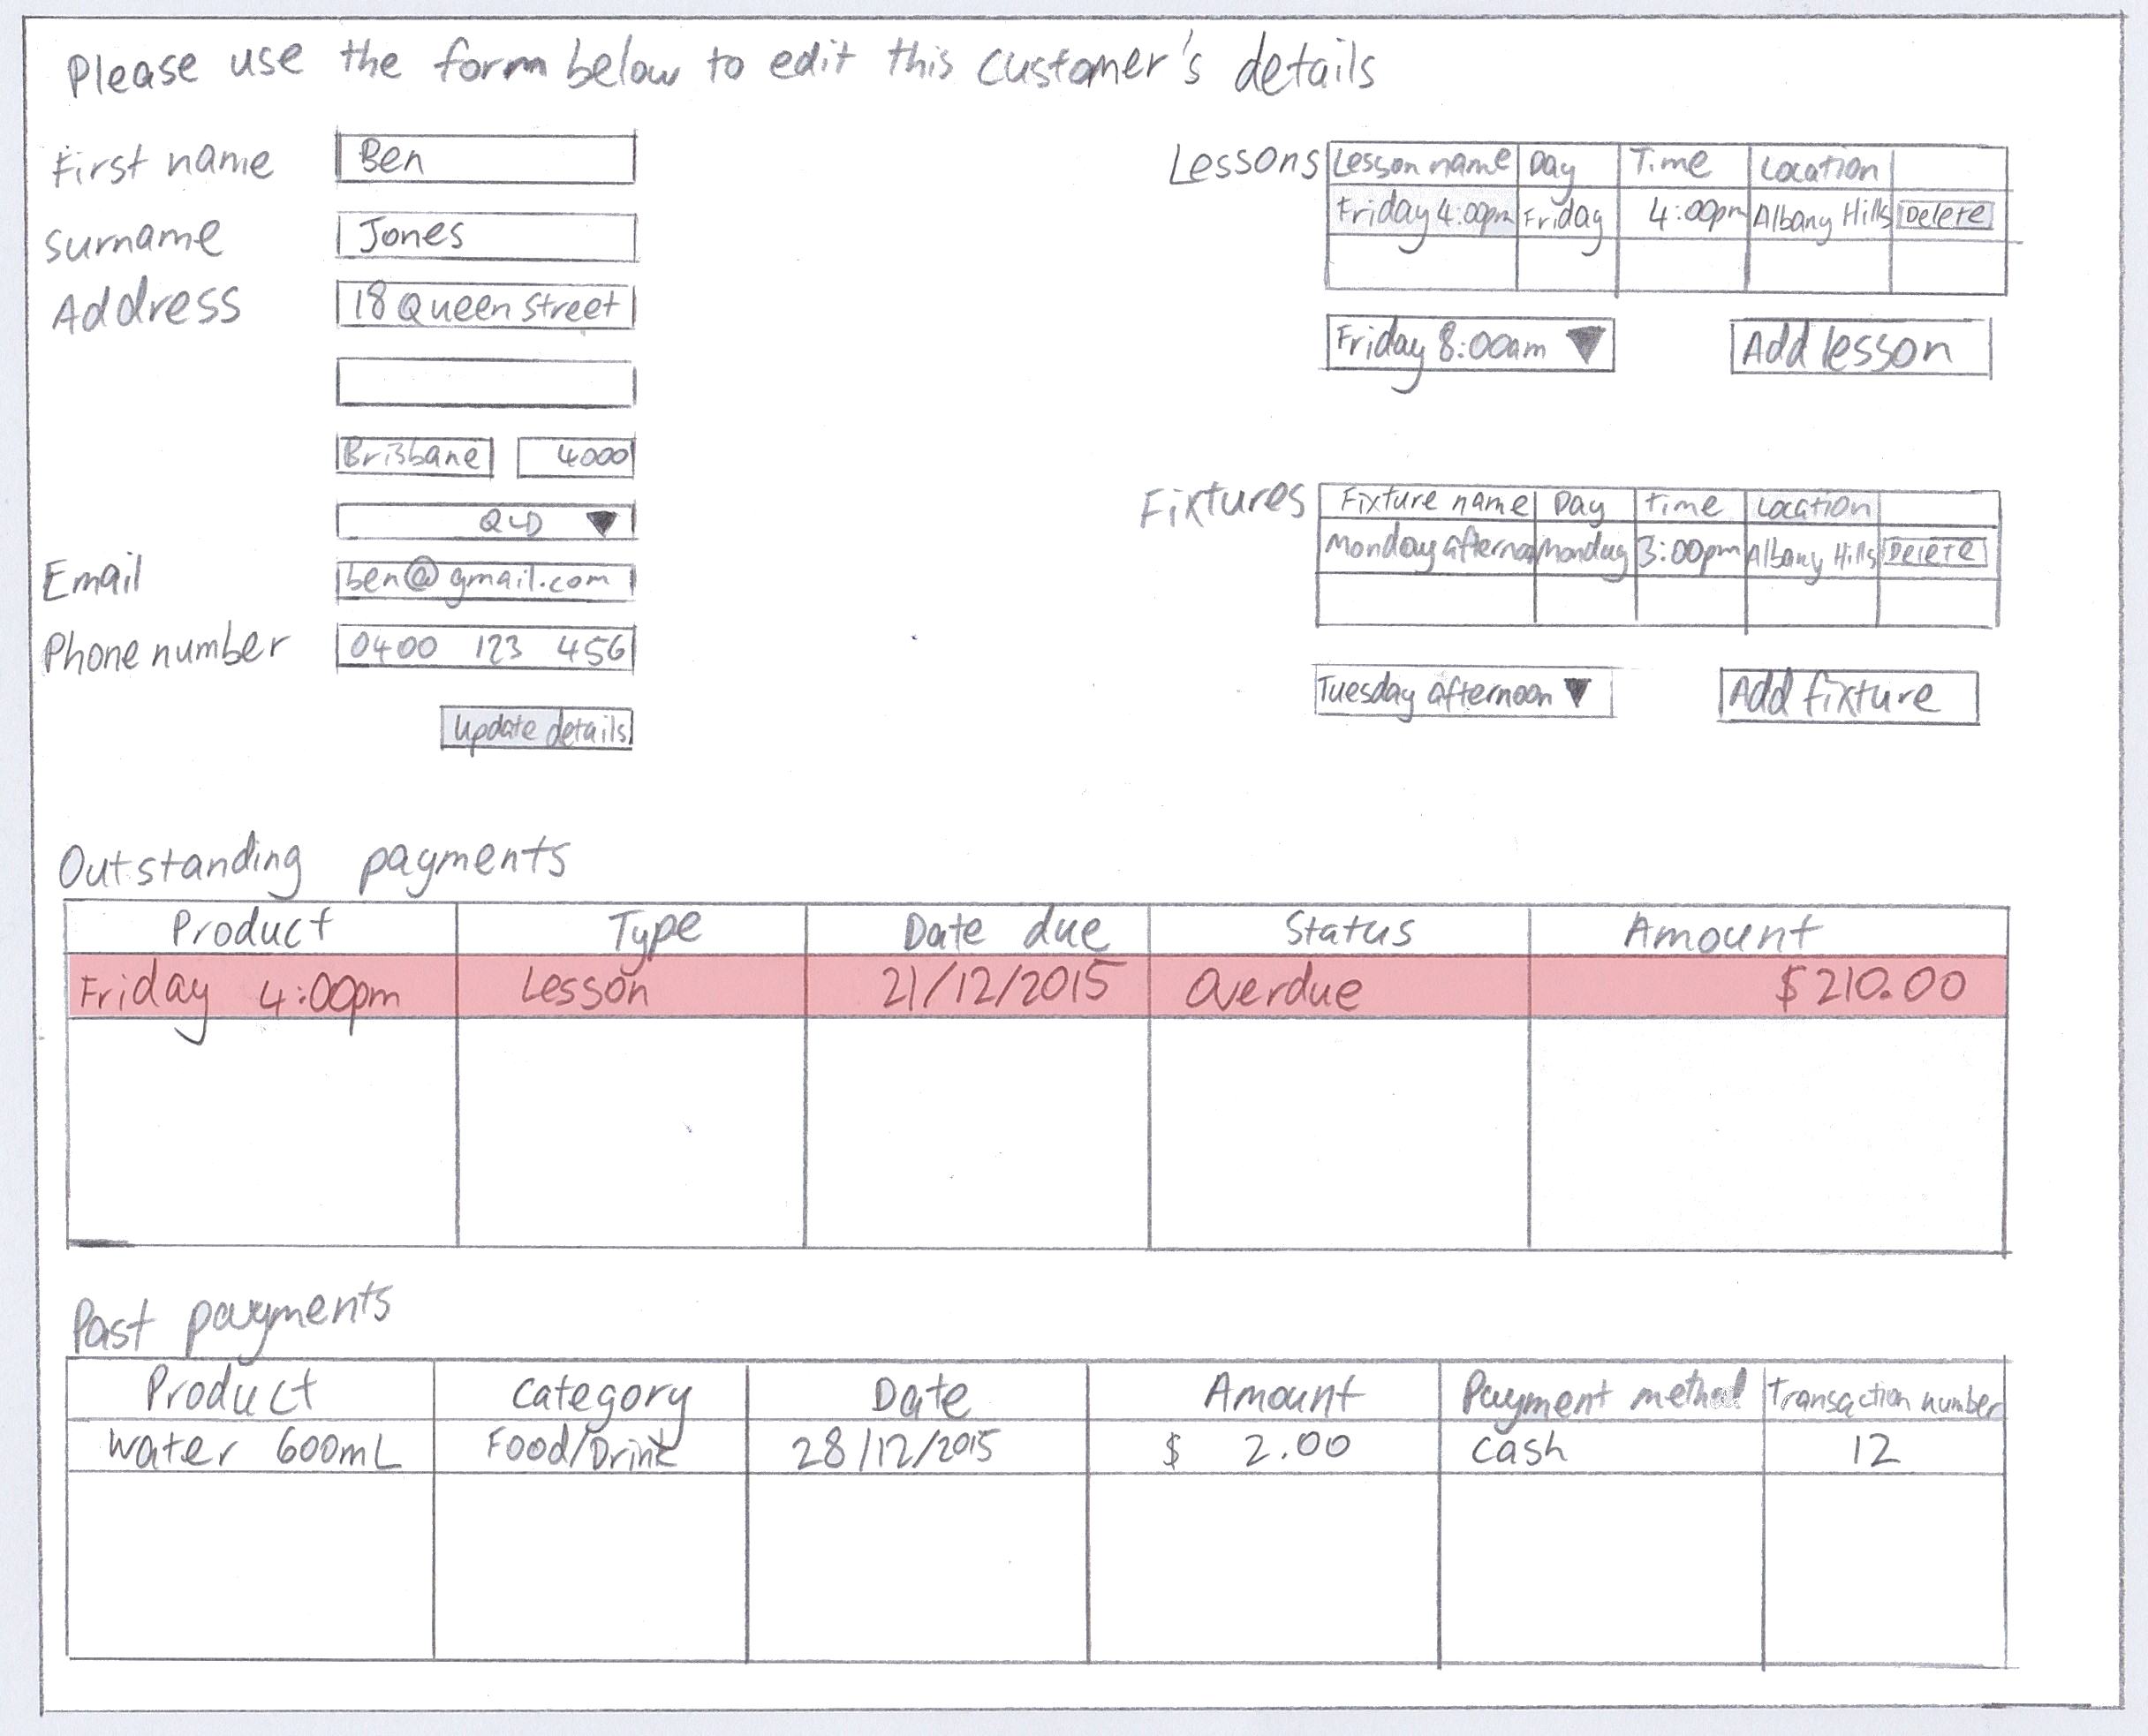 Please use the form below to edit this customer's details
First name Ben
Surname Jones
Address 18 Queen Street
Brisbane 4000
QLD
Email ben@gmail.com
Phone number 0400 123 456
Update details
Lessons Lesson name Day Time Location
Friday 4:00pm Friday 4:00pm Albany Hills Delete
Friday 8:00am Add lesson
Fixtures Fixture name Day Time Location
Monday afternoo Monday 3:00pm Albany Hills Delete
Tuesday afternoon Add fixture
Outstanding payments
Product Type Date due Status Amount
Friday 4:00pm Lesson 21/12/2015 Overdue $210.00
Past payments
Product Category Date Amount Payment method Transaction number
Water 600mL Food/Drink 28/12/2015 $ 2.00 Cash 12